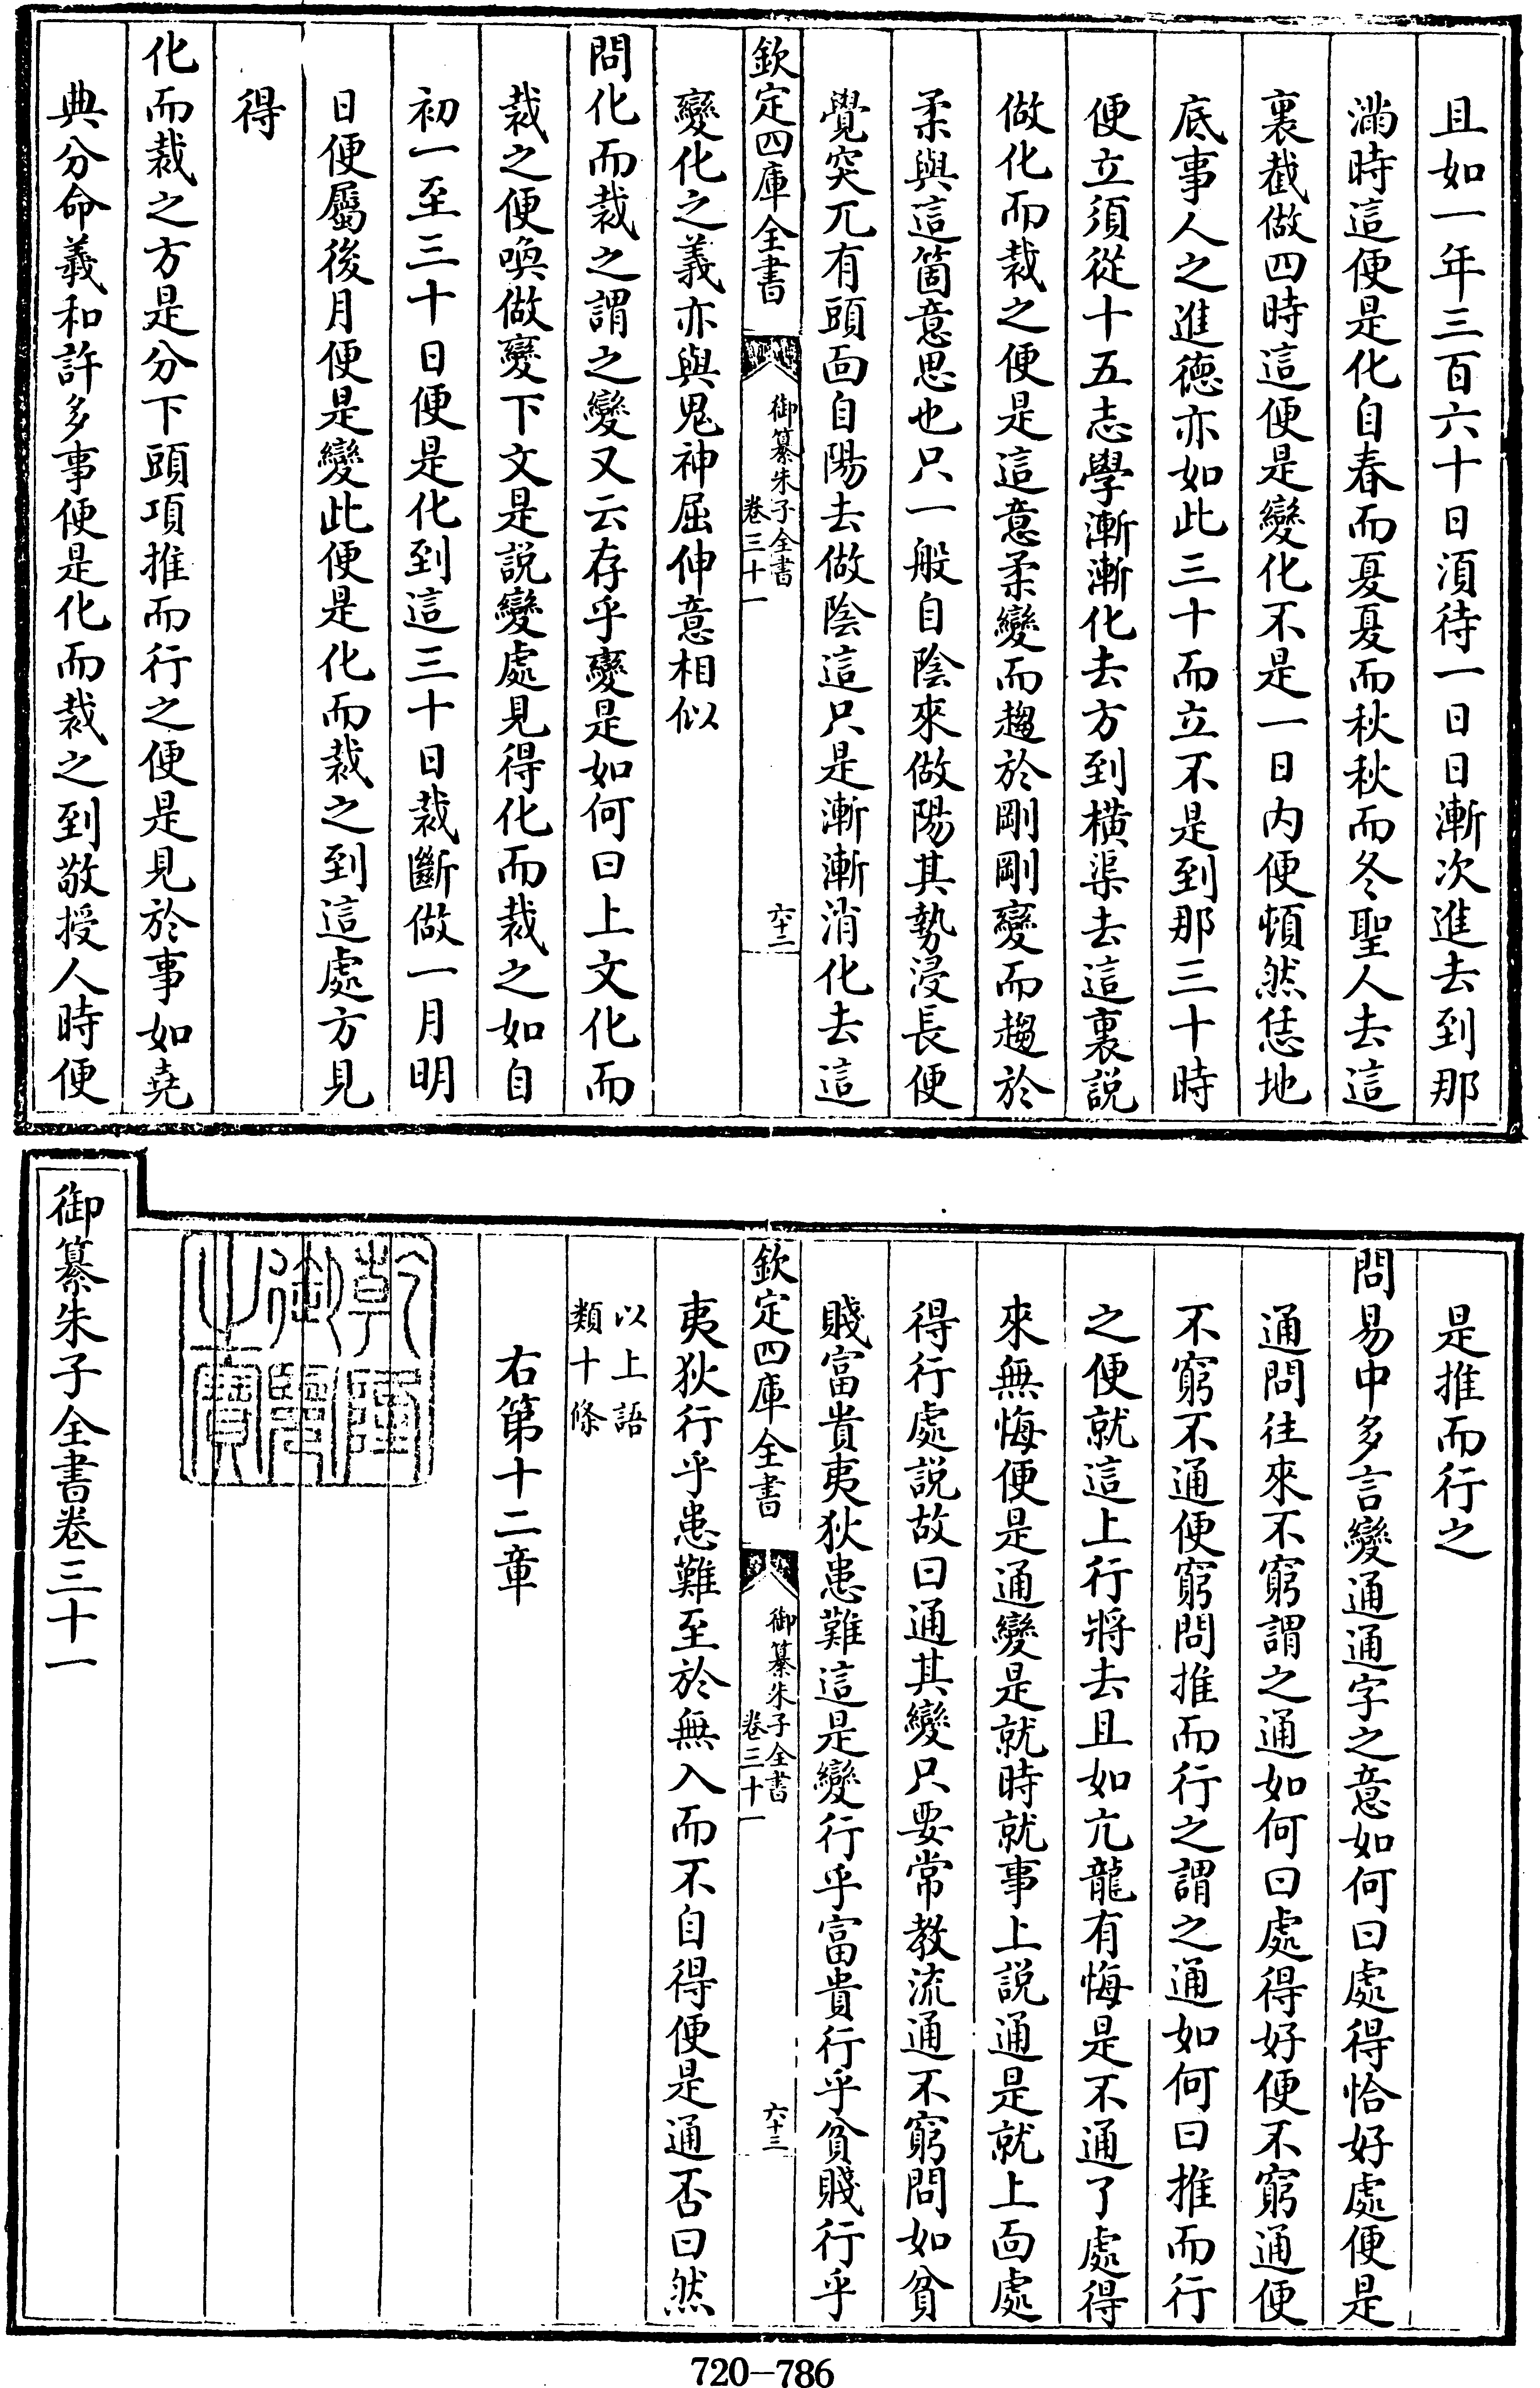 且如一年三百六十日須待一日日漸次進去到那
滿時這便是化自春而夏夏而秋秋而冬聖人去這
裏截做四時這便是變化不是一日内便頓然恁地
底事人之進德亦如此三十而立不是到那三十時
便立須從十五志學漸漸化去方到横渠去這裏說
做化而裁之便是這意柔變而趨於剛剛變而趨於
柔與這箇意思也只一般自陰來做陽其勢浸長便
覺突兀有頭面自陽去做陰這只是漸漸消化去這
欽定四庫全書
御纂朱子全書
卷三十一
六十二
變化之義亦與鬼神屈伸意相似
問化而裁之謂之變又云存乎變是如何曰上文化而
裁之便喚做變下文是説變處見得化而裁之如自
初一至三十日便是化到這三十日裁斷做一月明
日便屬後月便是變此便是化而裁之到這處方見
得
化而裁之方是分下頭項推而行之便是見於事如堯
典分命羲和許多事便是化而裁之到敬授人時便
是推而行之
問易中多言變通通字之意如何曰處得恰好處便是
通問往來不窮謂之通如何曰處得好便不窮通便
不窮不通便窮問推而行之謂之通如何曰推而行
之便就這上行將去且如亢龍有悔是不通了處得
來無悔便是通變是就時就事上説通是就上面處
得行處説故曰通其變只要常教流通不窮問如貧
賤富貴夷狄患難這是變行乎富貴行乎貧賤行乎
欽定四庫全書
御纂朱子全書
卷三十一
六十三
夷狄行乎患難至於無入而不自得便是通否曰然
以上語
類十條
右第十二章
乾隆
御覽
之寶
御纂朱子全書卷三十一
720-786